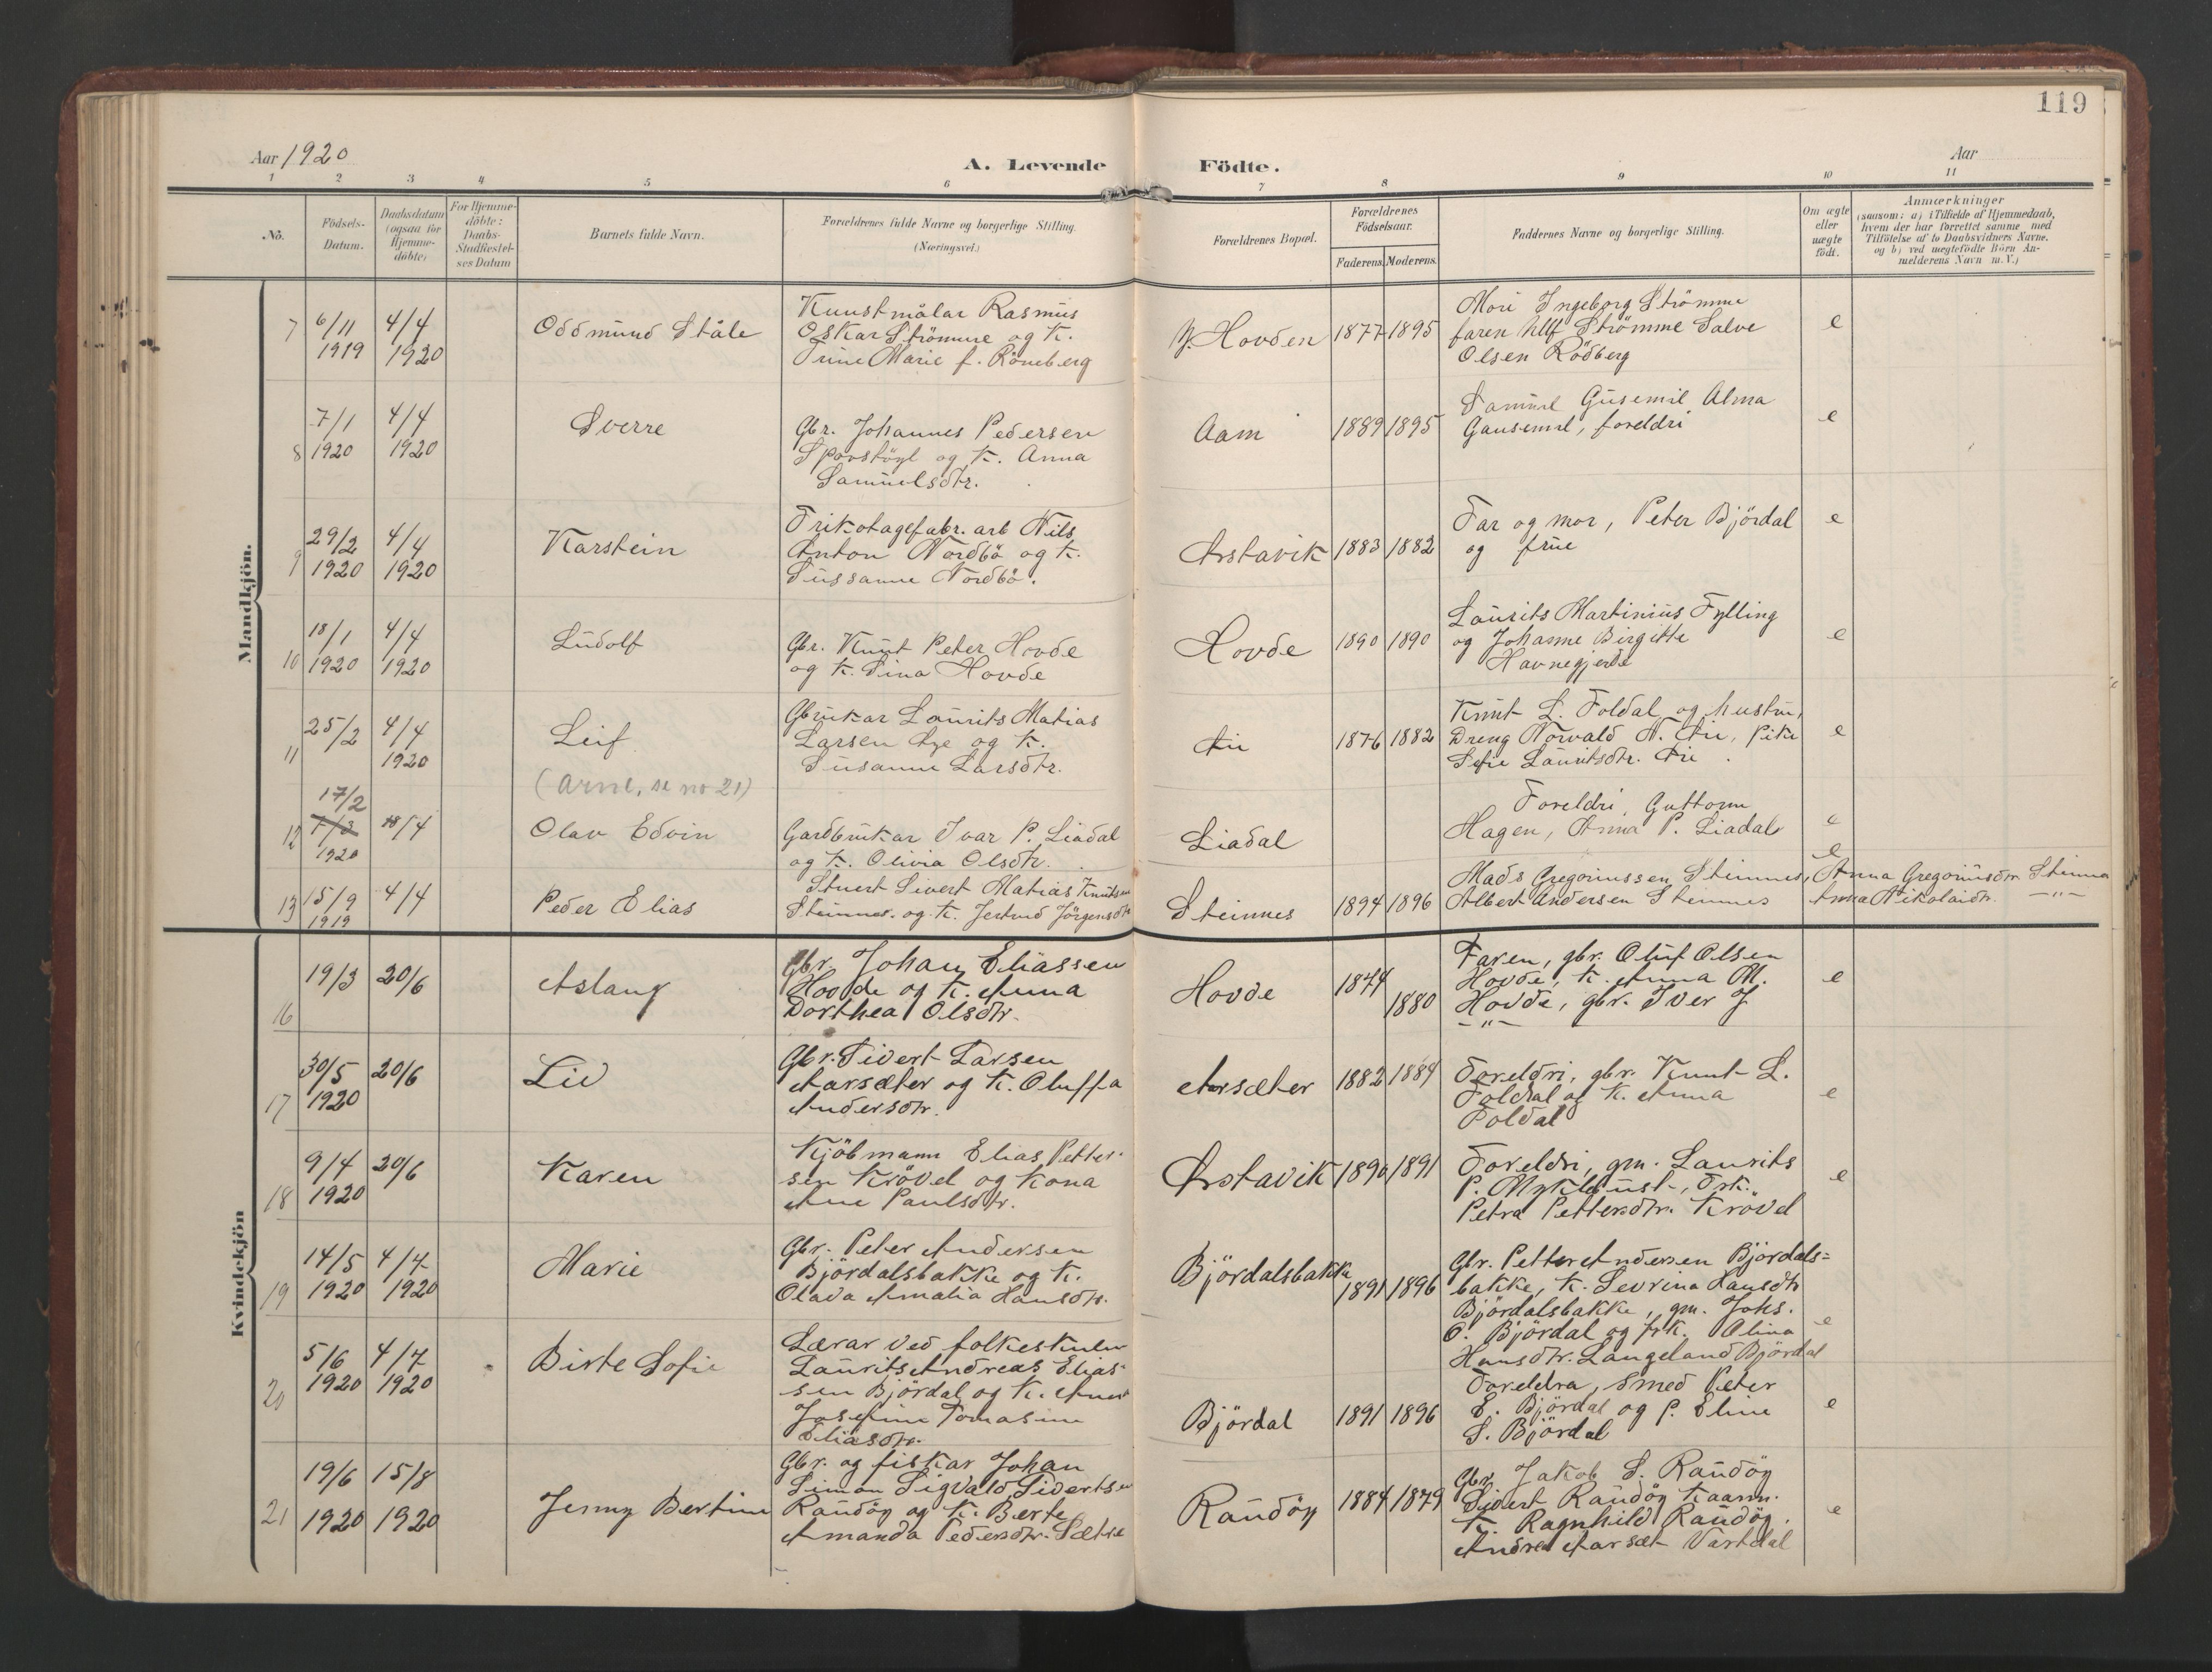 119
Aar 1920
A. Levende Födte.
Aar
1 2 3 4 5 6 7 8 9 10 11
Nö.
Födsels-Datum.
Daabsdatum (ogsaa for Hjemme-döbte)
For Hjemme-döbte: Daabs-Stadfæstel-ses Datum
Barnets fulde Navn.
Forældrenes fulde Navne og borgerlige Stilling.
(Næringsvei.)
Forældrenes Bopæl.
Forældrenes Födselsaar.
Faderens. Moderens.
Faddernes Navne og borgerlige Stilling.
Om ægte eller uægte födt.
Anmærkninger
(saasom: a) i Tilfælde af Hjemmedaab,
hvem der har forrettet samme med
Tilföielse af to Daabsvidners Navne.
og b) ved uægtefödte Börn An-
melderens Navn m. V.)
Mandkjön.
7
6/11 1919
4/4 1920
Oddmund Ståle
Kunstmålar Rasmus
Oskar Strömme og k.
Trine Marie f. Röneberg
Y. Hovden
1877 1895
Mori Ingeborg Strömme
faren Ulf Strömme Salve
Olsen Rödberg
e
8
7/1 1920
4/4 1920
Sverre
Gbr. Johannes Pedersen
og k. Anna
Samuelsdtr.
Aam
1889 1895
Samuel Gusemil Alma
Gausemel, foreldri
e
9
29/2 1920
4/4 1920
Karstein
Trikotagefabr. arb Nils
Anton Nordbö og k.
Sussanne Nordbö.
Årstavik
1883 1882
Far og mor, Peter Björdal
og frue
e
10
18/1 1920
4/4 1920
Ludolf
Gbr. Knut Peter Hovde
og k. Sina Hovde
Hovde
1890 1890
Laurits Martinius Fylling
og Johanne Birgitte
Havnegjerde
e
11
25/2
4/4 1920
Leif
Gbrukar Laurits Matias
Larsen og k.
Susanne Larsdtr.
1876 1882
Knut L. Foldal og hustru,
Dreng Norvald N. Pike
Sefie Lauritsdtr.
e
(Arne, se no 21)
12
17/2
7/3
1920
18/4
Olav Edvin
Gardbrukar Ivar P. Liadal
og k. Olivia Olsdtr.
Liadal
Foreldri, Guttorm
Hagen, Anna P. Liadal
e
13
15/9 1919
4/4
Peder Elias
Stuert Sivert Matias Knutsen
Steinnes og k. Jertrud Jörgensdtr
Steinnes
1894 1896
Mads Gregoriussen Steinnes, Anna Gregoriusdtr Steinnes
Albert Andersen Steinnes Anna Nikolaidtr. -"-
e
Kvindekjön
16
19/3
20/6
Aslaug
Gbr. Johan Eliassen
Hovde og k. Anna
Dorthea Olsdtr.
Hovde
1874
1880
Faren, gbr. Oluf Olsen
Hovde, k. Anna M.
Hovde, gbr. Iver J
-"-
e
17
30/5 1920
20/6
Liv
Gbr. Sivert Larsen
Aarsæter og k. Oluffa
Andersdtr.
Aarsæter
1882 1884
Foreldri, gbr. Knut L.
Foldal og k. Anna
Foldal
e
18
9/4 1920
20/6
Karen
Kjöbmann Elias Petter-
sen Krövel og kona
Ane Paulsdtr.
Årstavik
1890 1891
Foreldri, gm. Laurits
P. Myklebust, frk.
Petra Pettersdtr. Krövel
e
19
14/5 1920
4/7 1920
Marie
Gbr. Peter Andersen
Björdalsbakke og k.
Olava Amalia Hansdtr.
Björdalsbakke
1891 1896
Gbr. Petter Andersen Björdals=
bakke, k. Sevrina Hansdtr
Björdalsbakke, gm. Johs.
O. Björdal og frk. Olina
Hansdtr. Langeland Björdal
e
20
5/6 1920
4/7 1920
Birte Sofie
Lærar ved folkeskulen
Laurits Andreas Elias-
sen Björdal og k. Anna
Josefine Tomasine
Eliasdtr.
Björdal
1891 1896
Foreldra, smed Peter
E. Björdal og p. Eline
S. Björdal
e
21
19/6 1920
15/8 1920
Jenny Bertine
Gbr. og fiskar Johan
Simon Sigvald Sivertsen
Raudöy og k. Berte
Amanda Pedersdtr. Sætre
Raudöy
1884 1879
Gbr. Jakob S. Raudöy
Sivert Raudöy
k. Ragnhild Raudöy.
Andrea Aarsæt Vartdal
e